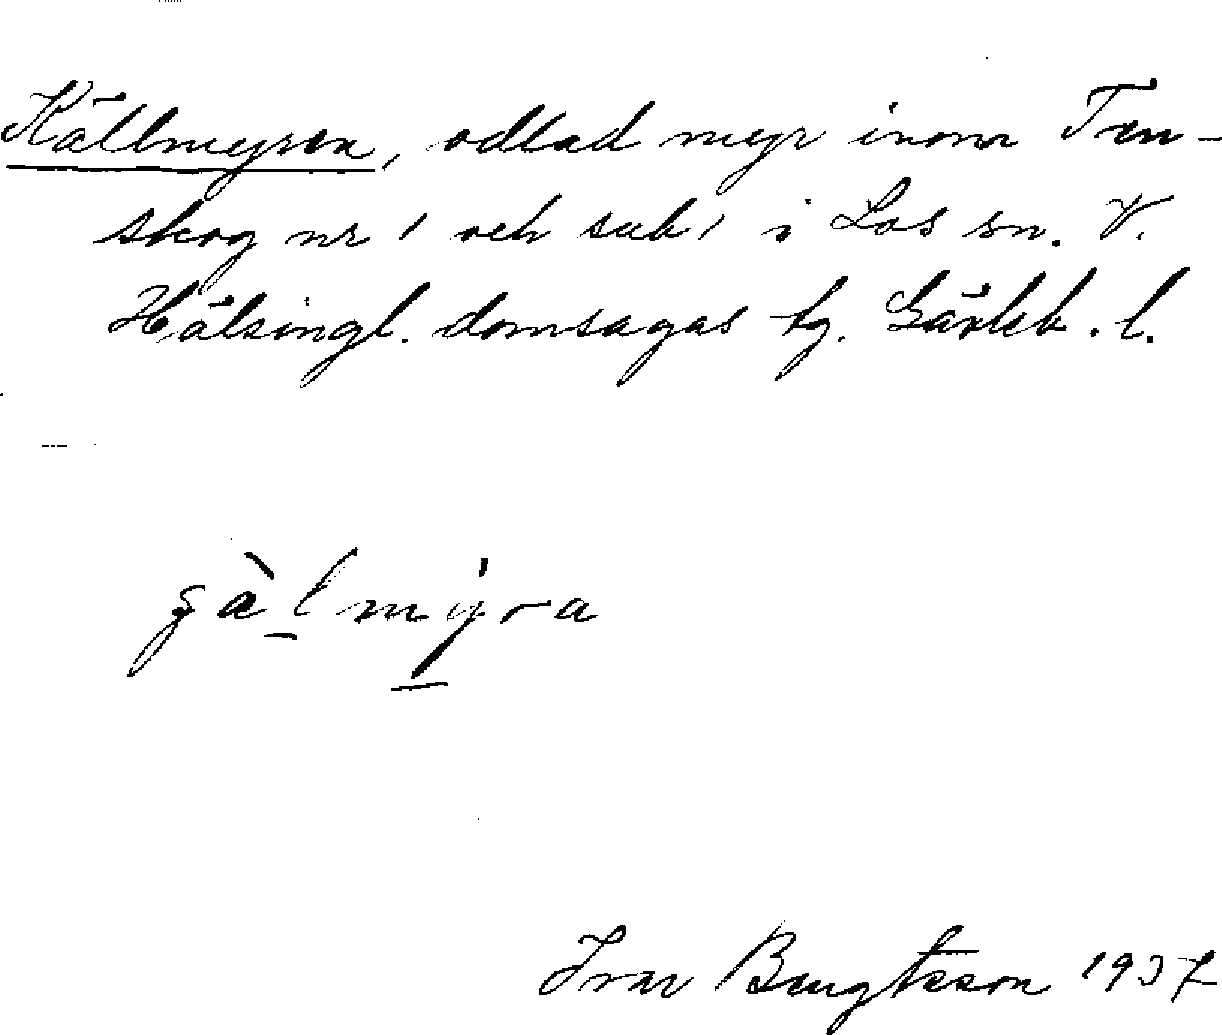 Källmyren, odlad myr inom Ten-
skog nr 1 och sub1 i Los sn. V.
Hälsingl. domsagas tg. Gävleb. l.
gàlmýra
Ivar Bengtsson 1937